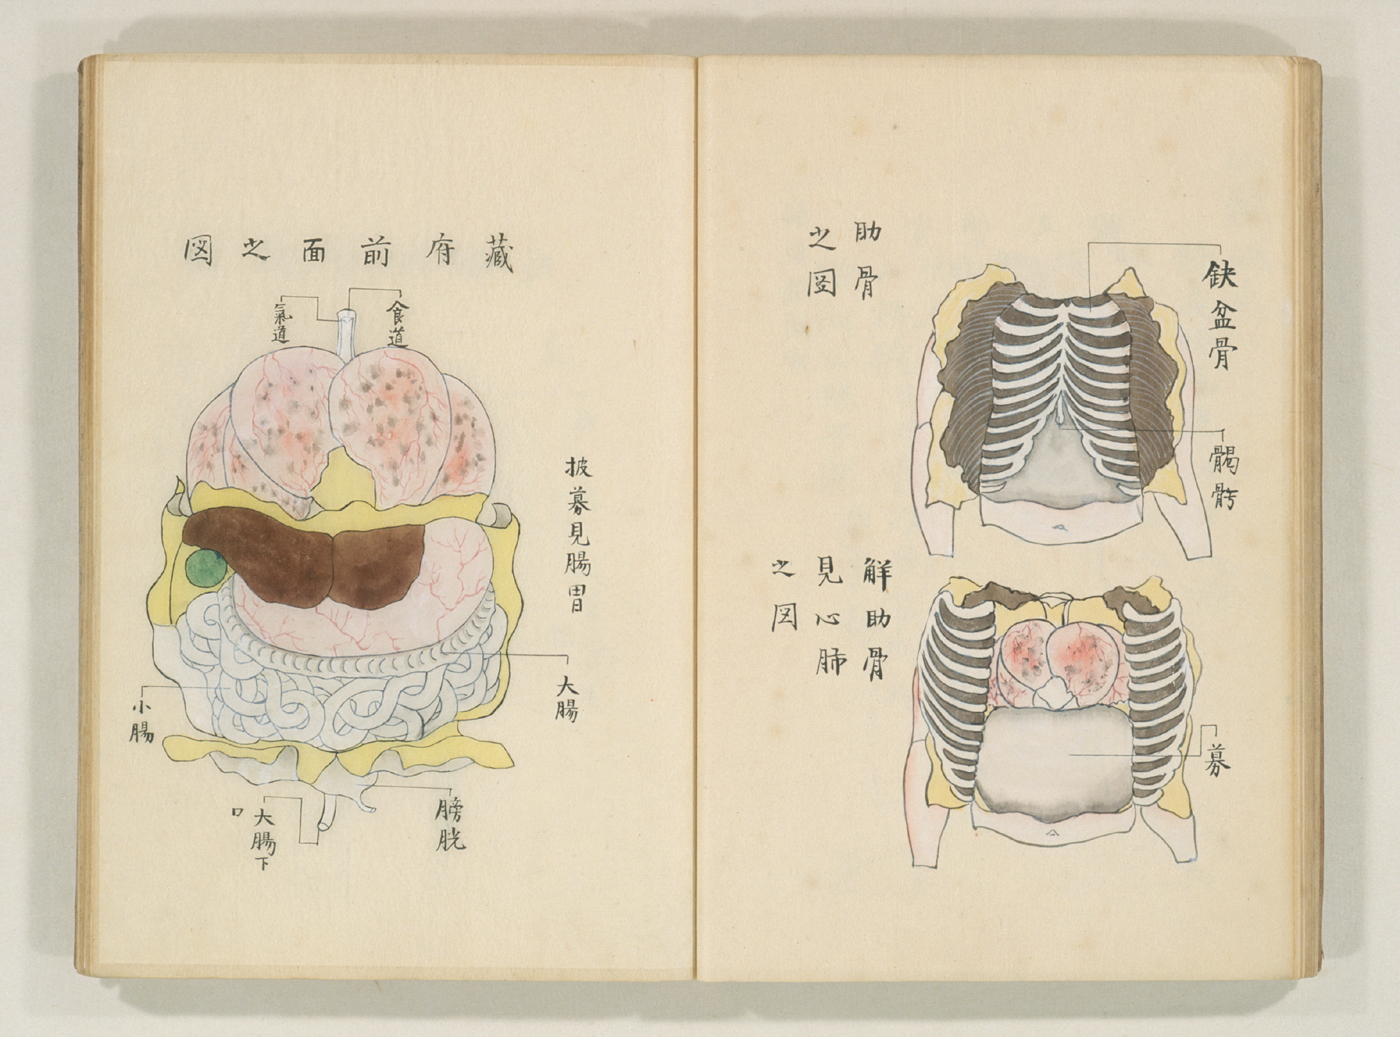 鈌盆骨
𩩲骬
助骨
之図
解助骨
見心肺
之図
募
藏府前面之図
食道
氣道
披募見腸胃
大腸
小腸
膀胱
大腸下
口